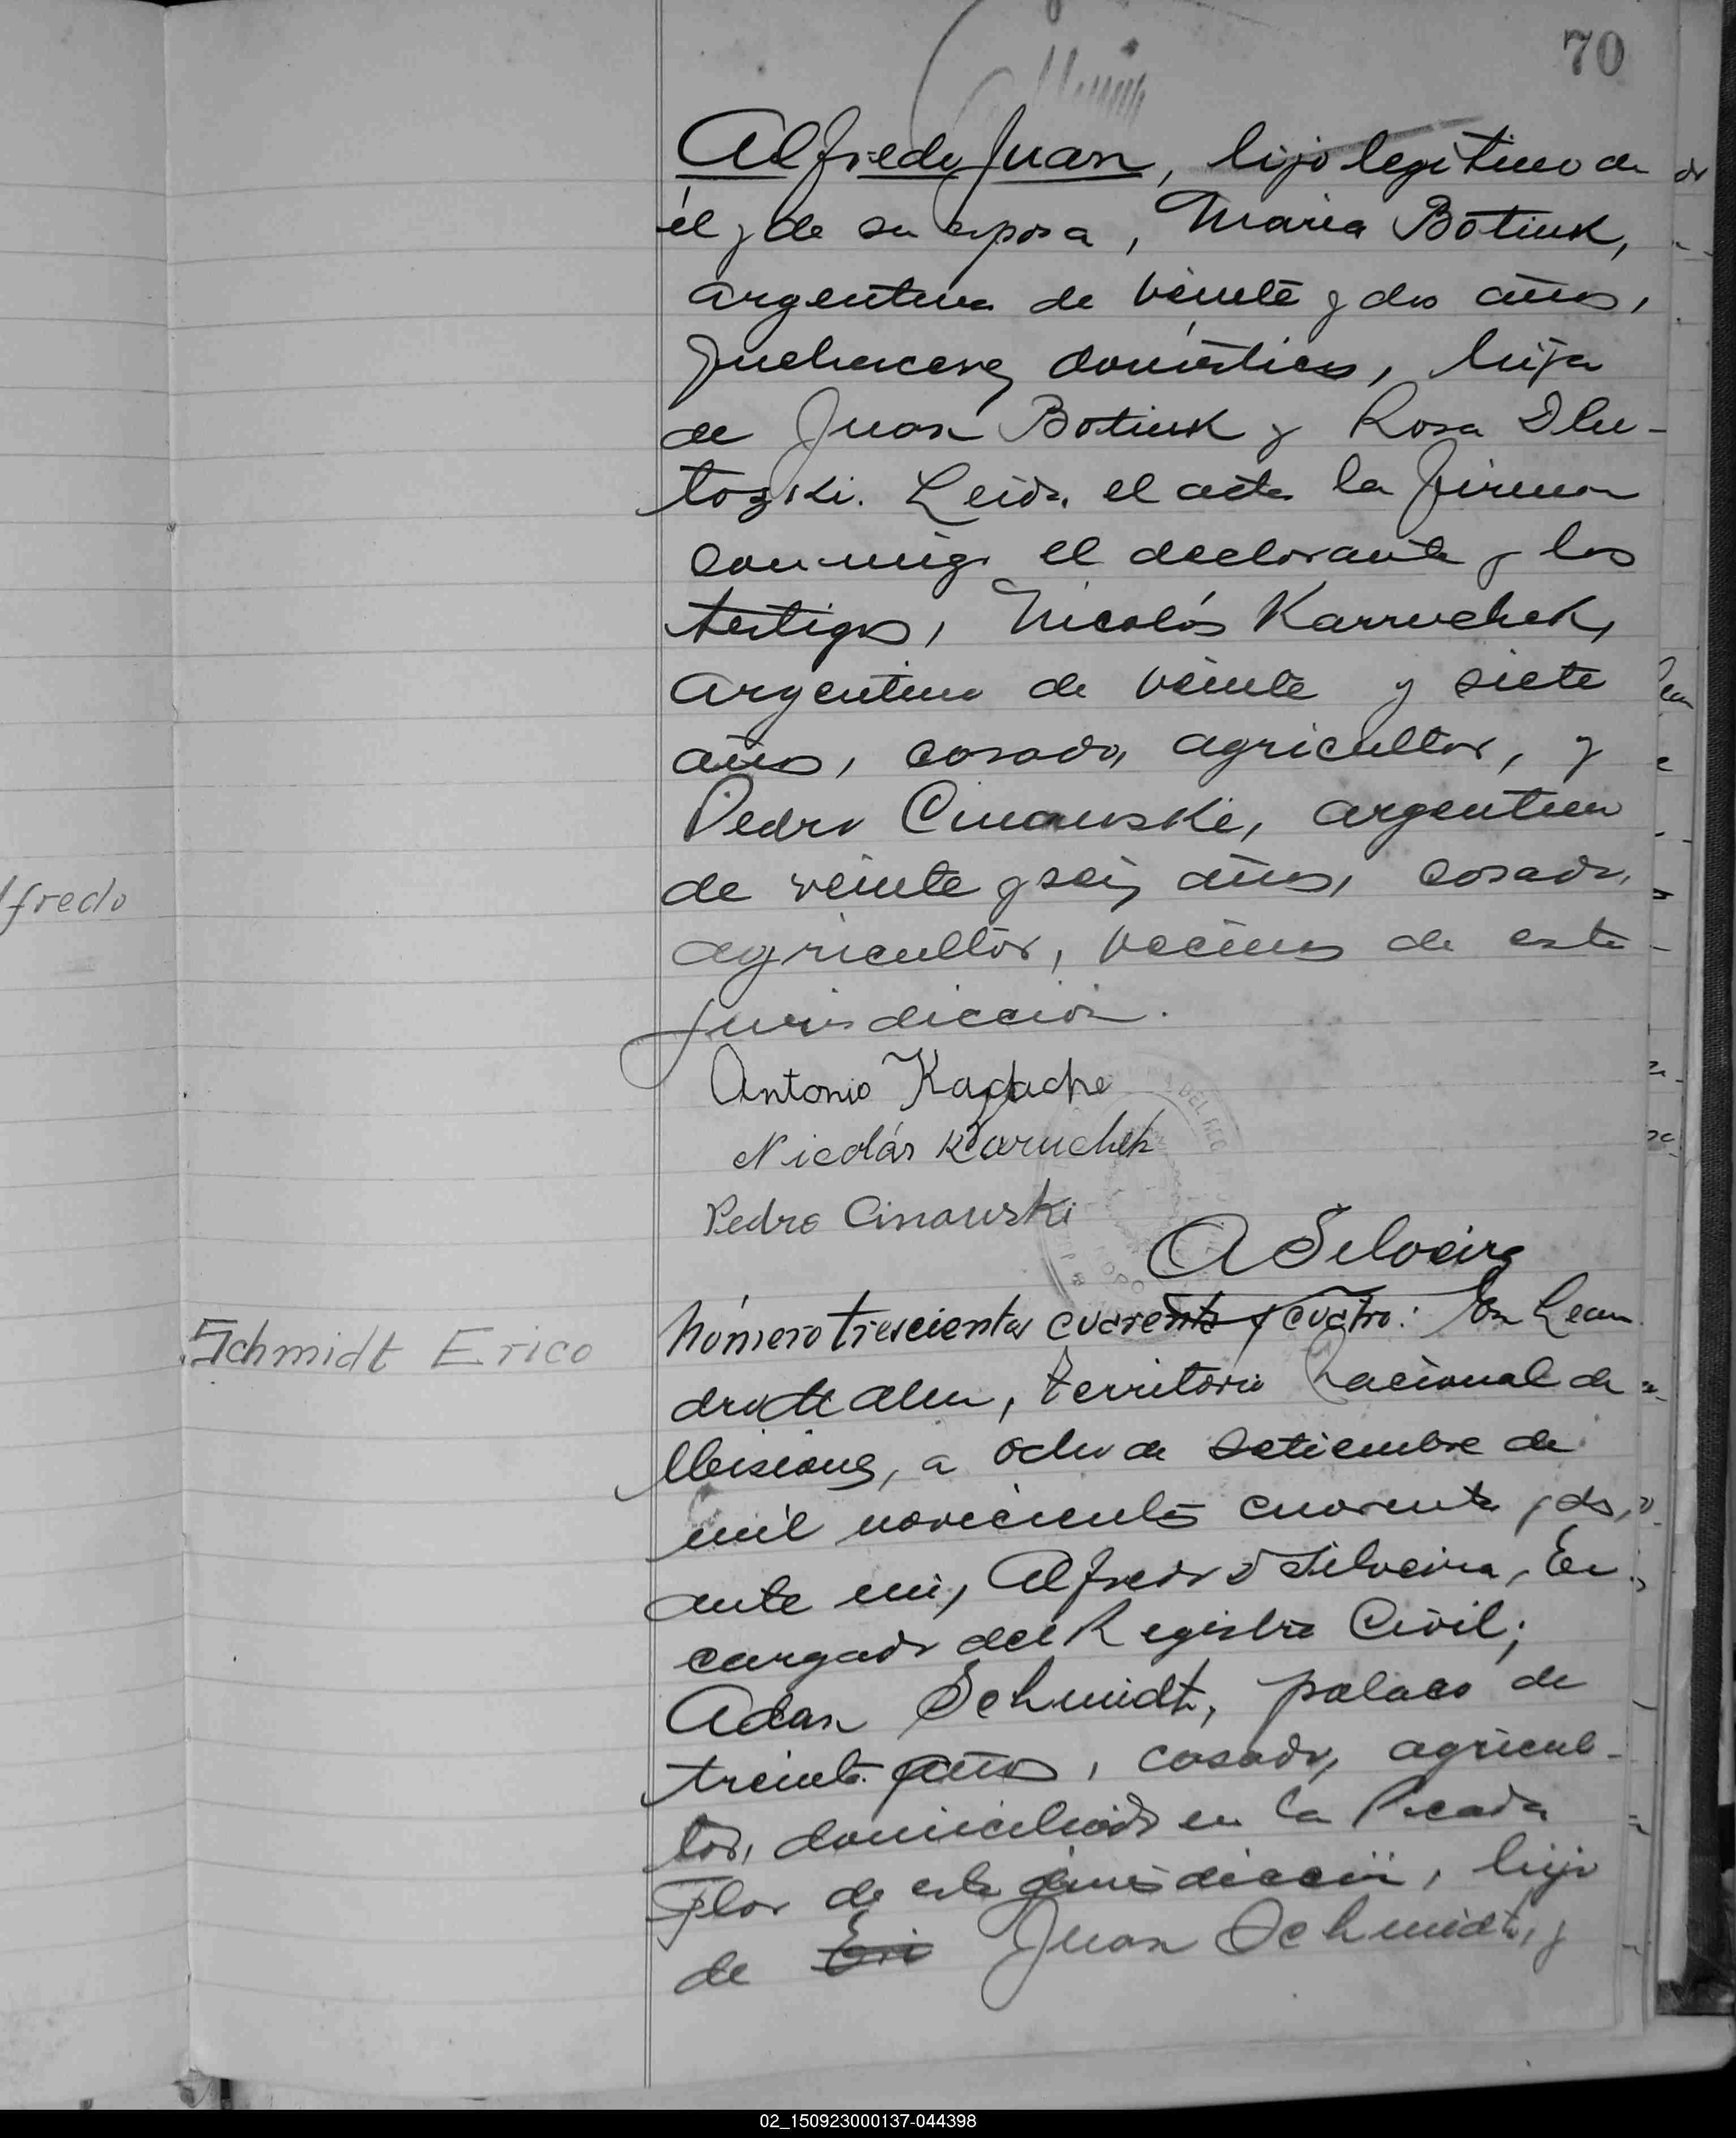 70
Alfredo Juan, hijo legítimo de
él y de su esposa, María Botiuk,
argentina de veinte y dos años,
quehaceres domésticos, hija
de Juan Botiuk y Rosa Dlu-
toski. Leida el acta la firman
conmigo el declarante y los
testigos, Nicolás Karruchek,
argentino de veinte y siete
años, casado, agricultor, y
Pedro Cinowski, argentino
de veinte y seis años, casado,
fredo
agricultor, vecinos de esta
jurisdicción.
Antonio
Nicolás Karuchek
Pedro Cinowski
A Silveira
Schmidt Erico
Número trescientos cuarenta y cuatro: En Lean
dro N Alem, territorio Nacional de
Misiones, a ocho de setiembre de
mil novecientos cuarenta y dos,
ante mi, Alfredo D Silveira, En
cargado del Registro Civil;
Adan Schmidt, polaco de
treinta años, casado, agricul-
tor, domiciliado en la Picada
Flor de esta jurisdicción, hijo
de Eri Juan Schmidt, y
02_150923000137-044398